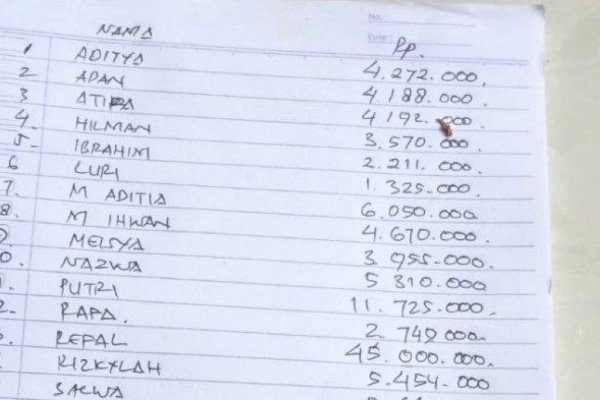 No.
Date:
NAMA Rp.
1 ADITYA 4.272.000,
2 APAN 4.188.000
3 ATIRA 4 192.000
4. HILMAN 3.570.000.
5- IBRAHIM 2.211.000
6 LURI 1.325.000
7. M ADITIA 6.050.000
8. M IHWAN 4.670.000.
MEISYA 3.955.000.
0. NAZWA 5 310.000
PUTRI 11.725.000.
RAPA. 2 749 000.
REPAL 45.000.000.
RIZKYLAH 5.454.000
SALWA